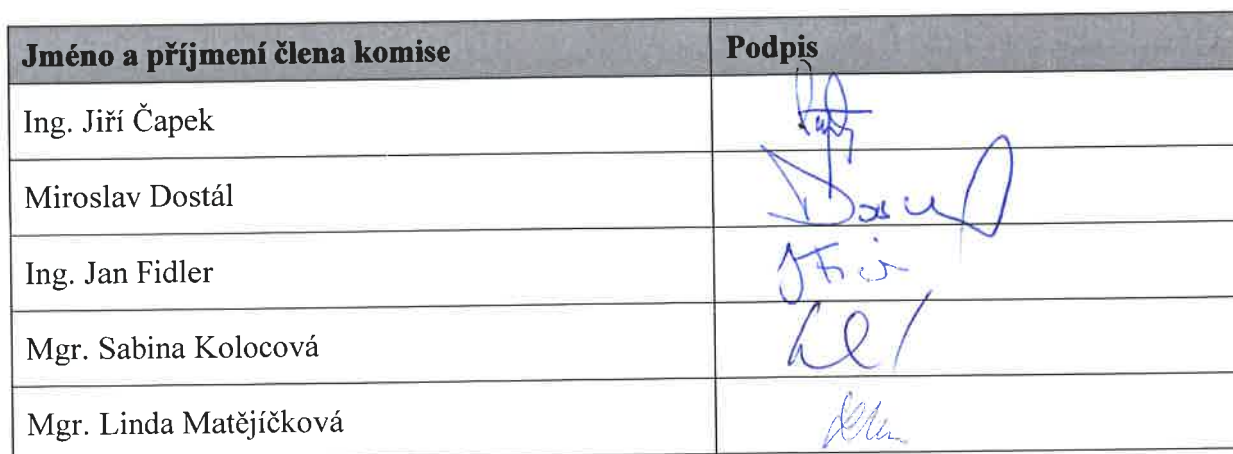 Jméno a příjmení člena komise Podpis
Ing. Jiří Čapek
Miroslav Dostál
Ing. Jan Fidler
Mgr. Sabina Kolocová
Mgr. Linda Matějíčková